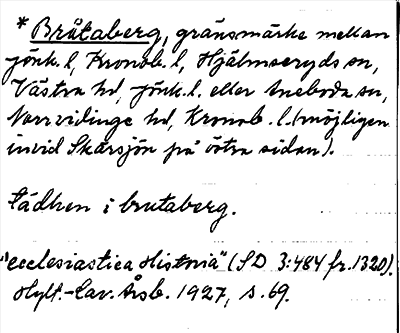 * Bråtaberg, gränsmärke mellan
Jönk. l, Kronob. l, Hjälmseryds sn,
Västra hd, Jönk. l. eller Aneboda sn,
Norrvidinge hd, Kronob. l. (möjligen
invid Skärsjön på östra sidan).
tädhen i brutaberg.
"ecclesiastica Historia" (SD 3:484 fr. 1320).
Hylt.-Cav. Årsb. 1927, s. 69.